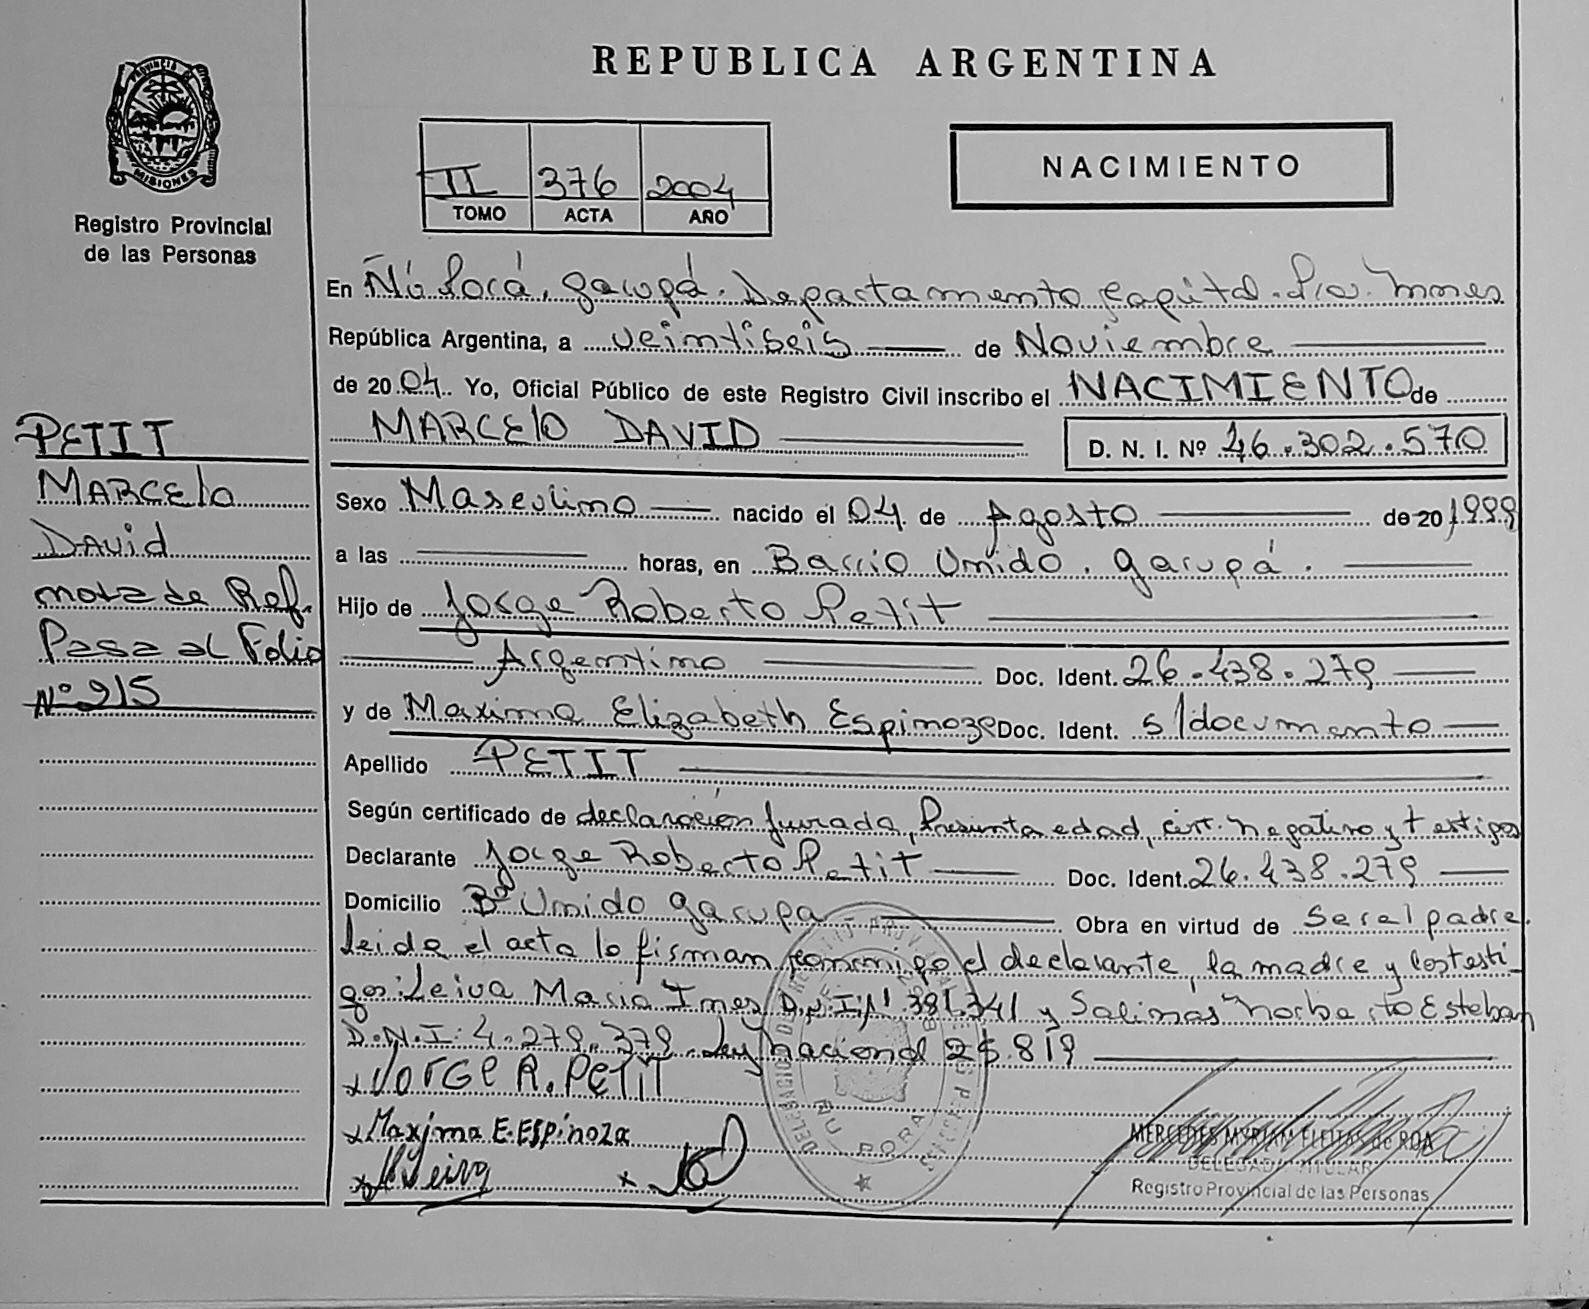 REPUBLICA ARGENTINA
PROVINCIA DE
MISIONES
Registro Provincial
de las Personas
II 376 2004
TOMO ACTA AÑO
NACIMIENTO
En Ñú Porá, Garupá. Departamento Capital. Pro. Mnes
República Argentina, a veintiseis de Noviembre
de 2004. Yo, Oficial Público de este Registro Civil inscribo el NACIMIENTO de
MARCElo DAVID D. N. I. Nº 46.302.570
PETIT
MARCElo
DAVid
nota de Ref.
Pasa al Folio
Nº 215
Sexo Masculino nacido el 04 de Agosto de 20 1999
a las horas, en Barrio Unido. Garupá.
Hijo de Jorge Roberto Petit
Argentino Doc. Ident. 26.438.279
y de Maxima Elizabeth Espinoza Doc. Ident. s/documento
Apellido PETIT
Según certificado de declaración jurada, Presunta edad, cert. negativo y testigos
Declarante Jorge Roberto Petit Doc. Ident. 26.438.279
Domicilio Bº Unido Garupa Obra en virtud de ser el padre.
Leida el acta lo firman conmigo el declarante, la madre y los testi-
gos: Leiva Maria Ines D.N.I Nº 381.341 y Salinas Norberto Esteban
D.N.I: 4.279.379. Ley nacional 25.819
x JORGE R. PETIT
x Maxima E. ESPinoza
x MILeiva x
ÑU PORA
MERCEDES MYRIAM FLEITAS de ROA
DELEGADA TITULAR
Registro Provincial de las Personas